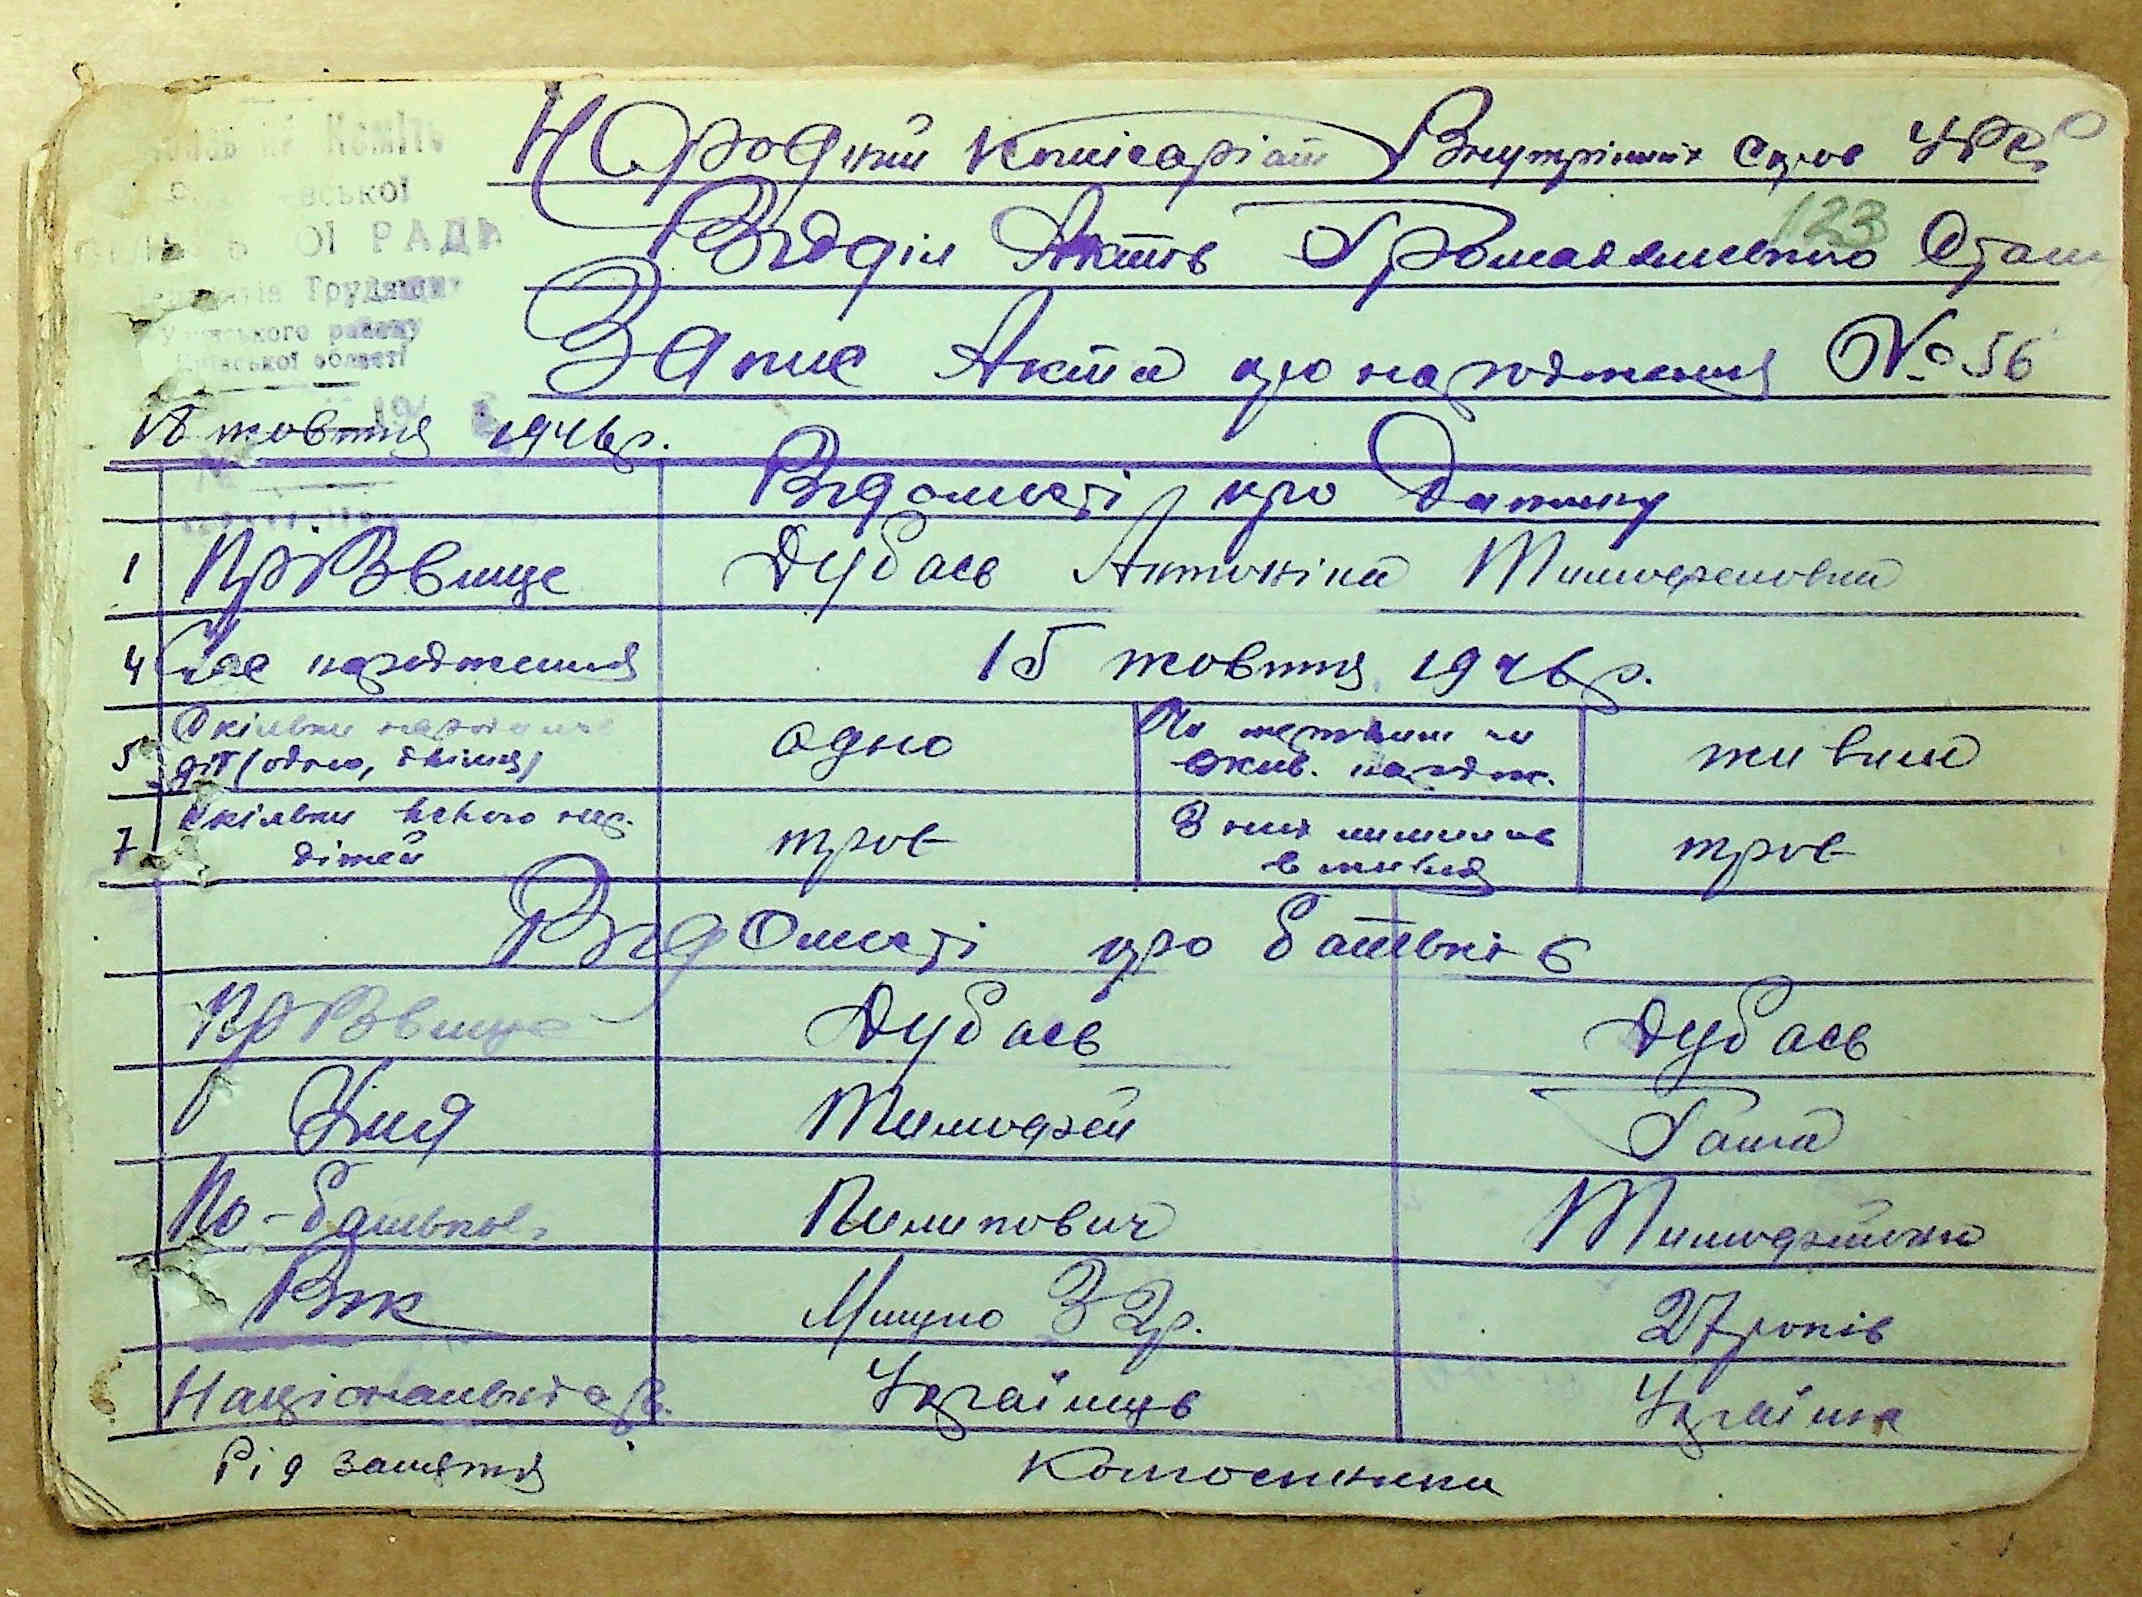 Комітет
ОЇ РАДИ
Трудящих
ського району
Київської області
Народний Комісаріат Внутрішніх справ УРСР
123
Відділ Актів Громадянського Стану
Запис Акта про народження № 56
18 жовтня 1946 р.
Відомості про дитину
1 Прізвище Дубась Антоніна Тимофеловна
4 Час народження 15 жовтня 1946 р.
5 Скільки народилось діт (одно, двійня) одно Чи мертвим чи жив. народж. живим
7 Скільки всього нар. дітей троє З них лишилось в живих троє
Відомості про батьків
Прізвище Дубась Дубась
Імя Тимофей Ганна
По-батькові Пилипович Тимофеївна
Вік Минуло 32 р. 27 років
Національність Українець Українка
Рід заняття Колгоспники